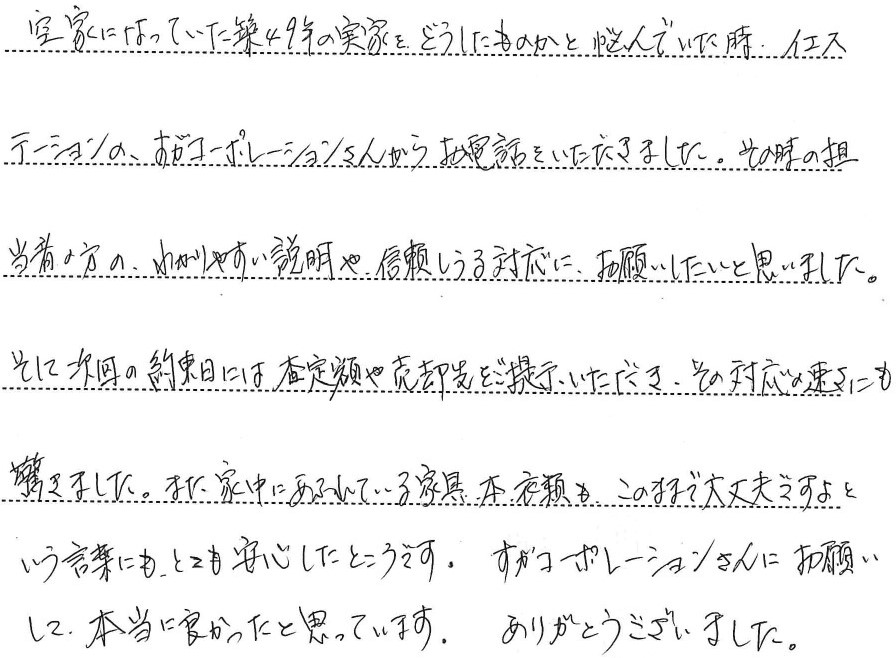 空家になっていた築49年の実家を、どうしたものかと悩んでいた時、イエス
テーションの、すがコーポレーションさんからお電話をいただきました。その時の担
当者の方の、わかりやすい説明や、信頼しうる対応に、お願いしたいと思いました。
そして次回の約束日には査定額や売却先をご提示いただき、その対応の速さにも
驚きました。また家中にあふれている家具、本、衣類も、このままで大丈夫ですよと
いう言葉にも、とても安心したところです。 すがコーポレーションさんにお願い
して、本当に良かったと思っています。 ありがとうございました。